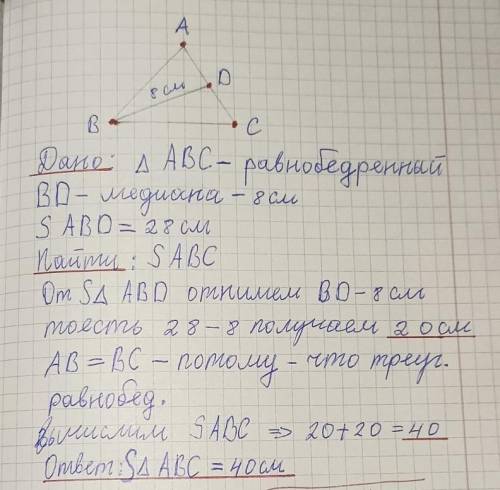 A
8 см
D
B
C
Дано: △ ABC – равнобедренный
BD – медиана – 8 см
S ABD = 28 см
Найти: S ABC
От S△ ABD отнимем BD – 8 см
тоесть 28 – 8 получаем 20 см
AB = BC – потому – что треуг.
равнобед.
Вычислим S ABC ⇒ 20 + 20 = 40
Ответ: S△ ABC = 40 см